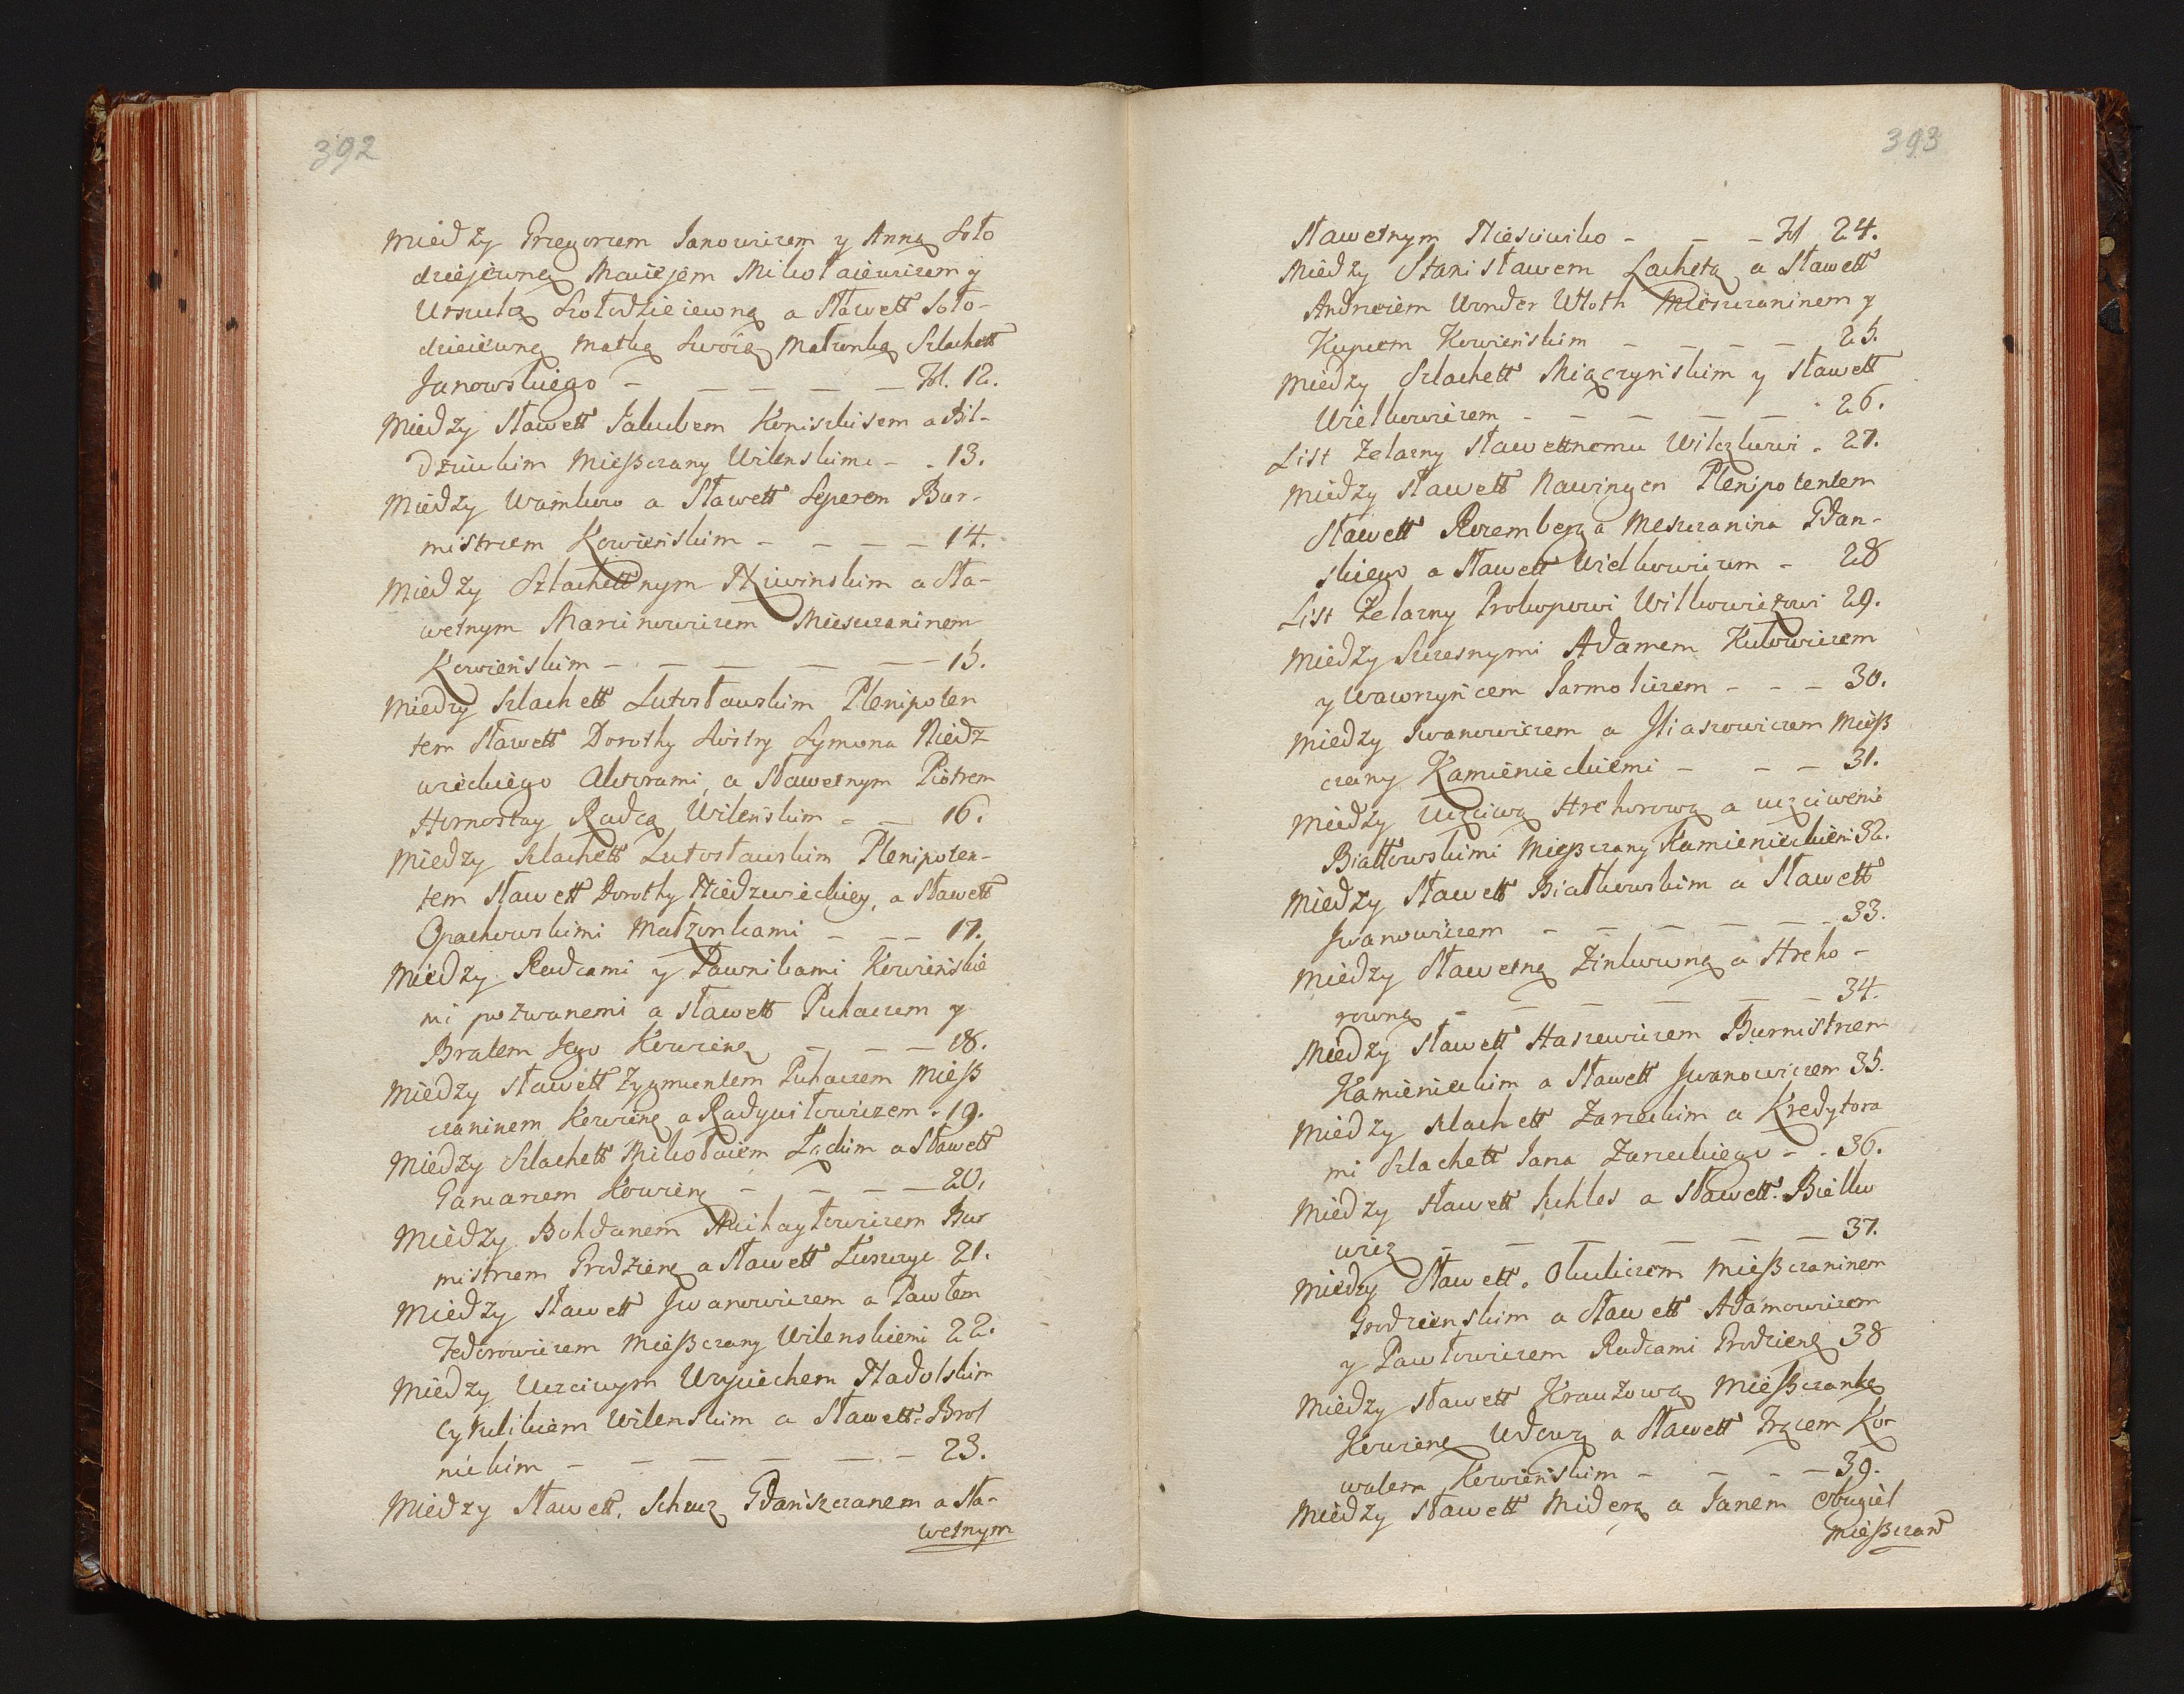 392
Między Grzegorzem Janowiczem y Anną Soło
dziejewną Maciejem Mikołaiewiczem y
Urszulą Szołodzieiewną a Sławett Soło-
dzieiewną Matką Swoią Małzonką Szlachett
Janowskiego - - - - - Fol. 12.
Między Sławett Jakubem Koniszkisem a Bil-
dziukim Mießczany Wilenskimi - . 13.
Między Wamkowo a Sławett Seperem Bur-
mistrzem Kowieńskim - - - - 14.
Między Szlachettnym Niwinskim a Sła-
wetnym Marcinowiczem Miesczaninem
Kowieńskim - - - - - 15.
Między Szlachett Lutosławskim Plenipoten
tem Sławett Dorothy Siostry Symona Niedz
wieckiego Aktorami, a Sławetnym Piotrem
Hornostay Radcą Wileńskim - - 16.
Między Szlachett Lutosławskim Plenipoten-
tem Sławett Dorothy Niedzwieckiey, a Sławett
Opachowskimi Małzonkami - - - 17.
Między Radcami y Ławnikami Kowieńskie
mi pozwanemi a Sławett Puhaczem y
Bratem Jego Kowieną - - - 18.
Między Sławett Zygmuntem Puhaczem Mieß
czaninem Kowieną a Radywiłowiczem . 19.
Między Szlachett Mikołaiem Łąckim a Sławett
Garcarzem Kowieną - - - - 20.
Między Bohdanem Michayłowiczem Bur
mistrzem Grodzieną a Sławett Łuszczyc 21.
Między Sławett Jwanowiczem a Pawłem
Fedorowiczem Mießczany Wilenskiemi 22.
Między Uczciwym Woyciechem Nadolskim
Cyrulikiem Wilenskim a Sławett: Brol
nickim - - - - - - 23.
Między Sławett. Schwcz Gdańszczanem a Sła-
wetnym
393
Sławetnym Niesiwiko - - - Fol 24.
Między Stanisławem Lachetą a Sławett
Andrzeiem Wonder Wloth Miesczaninem y
Kupcem Kowieńskim - - - - 25.
Między Szlachett Miączyńskim y Sławett
Wielkowiczem - - - - - 26.
List Żelazny Sławettnemu Wilczkowi . 27.
Między Sławett Nawingen Plenipotentem
Sławett Rozemberga Mesczanina Gdan-
skiego a Sławett Wielkowiczem - 28
List Żelazny Prokopowi Wilkowiczowi 29.
Między Szczesnymi Adamem Kutowiczem
y Wawrzyńcem Jarmoliczem - - - 30.
Między Jwanowiczem a Jliaszowiczem Mieß
czany Kamienieckiemi - - - 31.
Między Uczciwą Hrehorową a uczciwemi
Białłowskimi Mießczany Kamienieckiemi 32.
Między Sławett Białkowskim a Sławett
Jwanowiczem - - - - - 33.
Między Sławetną Zinkowną a Hreho-
rowną - - - - - - 34.
Między Sławett Haszewiczem Burmistrzem
Kamienieckim a Sławett Jwanowiczem 35.
Między Szlachett Zarzeckim a Kredytora
mi Szlachett Jana Zarzeckiego - . 36.
Między Sławett Suhles a Sławett. Bielko
wicz - - - - - - 37.
Między Sławett. Okuliczem Mießczaninem
Grodzienskim a Sławett Adamowiczem
y Pawłowiczem Radcami Grodzieną 38
Między Sławett Krauzową Mießczanką
Kowieną Wdową a Sławett Jrzcem Ko-
walem Kowieńskim - - - - 39.
Między Sławett Miderą a Janem Obugiel
Mießczan